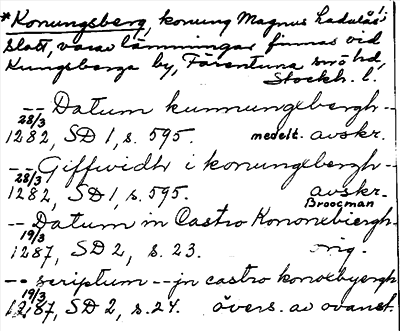 *Konungsberg, konung Magnus Ladulås'
slott, varav lämningar finnas vid
Kungsbergs by, Färentuna snö hd,
Stockh. l.
-- Datum kunnungsbergh --
28/3
1282, SD 1, s. 595. medelt. avskr.
-- Giffwidh i konungsbergh --
28/3
1282, SD 1, s. 595. avskr.
Broocman
-- Datum in Castro Kononxbiergh
19/3
1287, SD 2, s. 23. orig.
-- scriptum -- jn castro konoxbyergh
19/3
1287, SD 2, s. 24. övers. av ovanst.